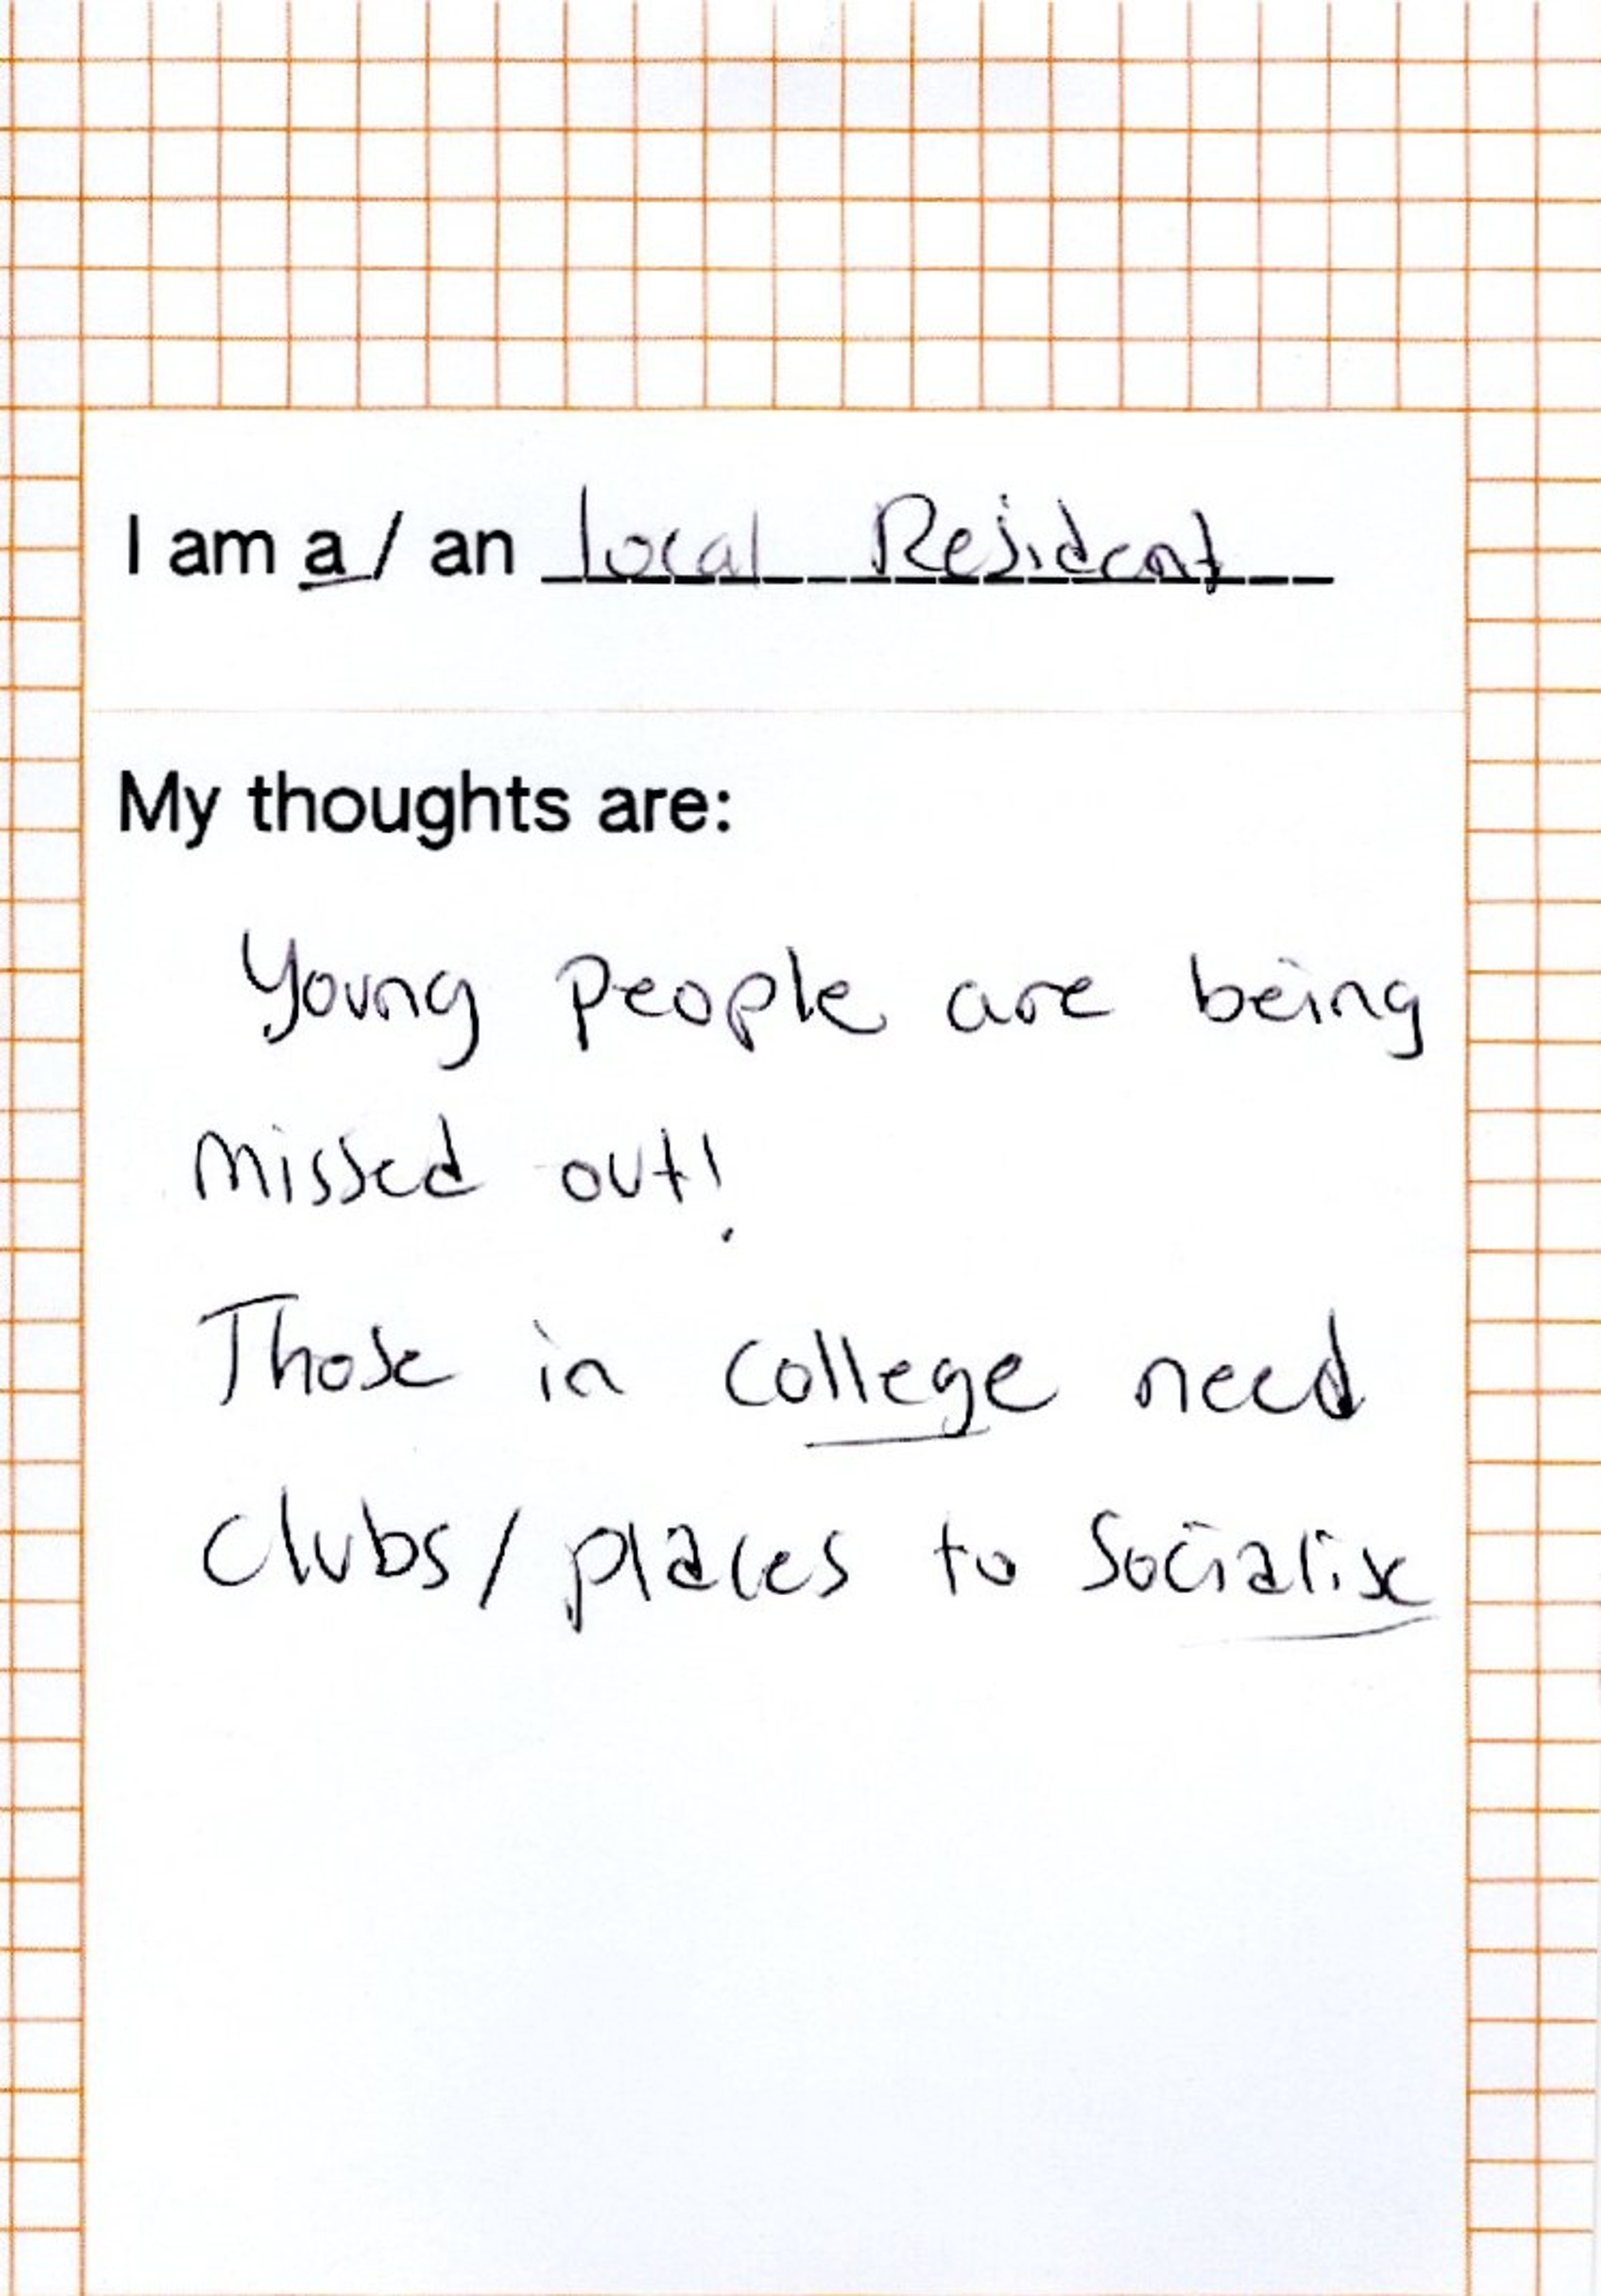 I am a / an local Resident
My thoughts are:
Young people are being
missed out!
Those in college need
clubs / places to socialise